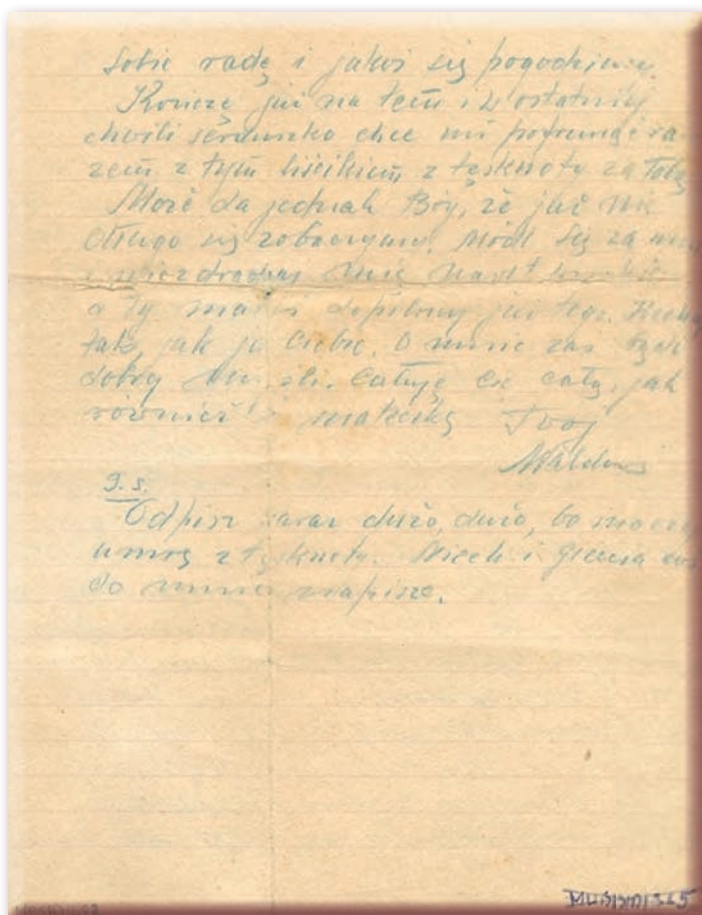 sobie radę i jakoś się pogodzimy.
Kończę już na tem i w ostatniej
chwili serduszko chce mi pofrunąć ra
zem z tym liścikiem z tęsknoty za Tobą
Może da jednak Bóg, że już nie
długo się zobaczymy. Módl się za mnie
i nie zdradzaj mnie nawet
a ty
tak, jak ja Ciebie. O mnie zaś bądź
dobrej myśli. Całuję Cię całą, jak
również mateńkę Twój
p.s.
Odpisz zaraz dużo, dużo, bo inaczej
umrę z tęsknoty. Niech i Gienia coś
do mnie napisze.